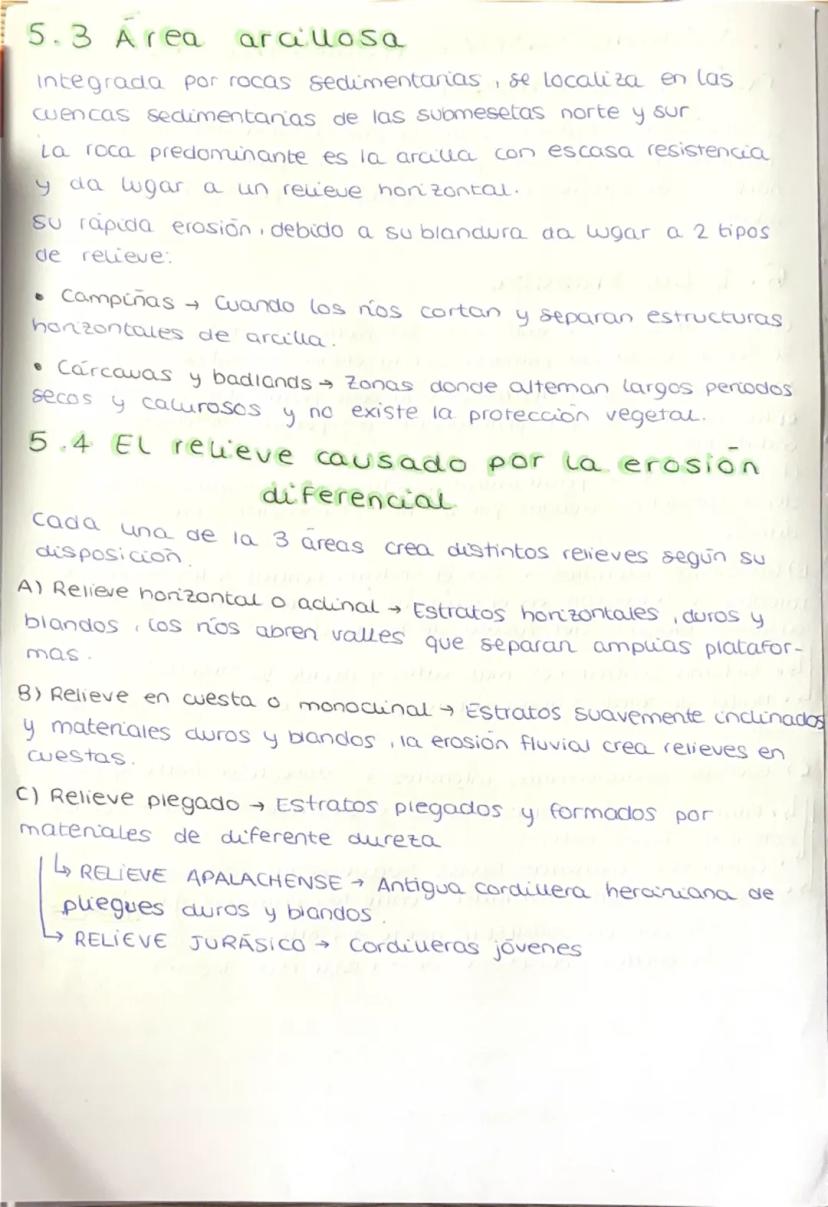 5.3 Área arcillosa
Integrada por rocas sedimentarias, se localiza en las
cuencas sedimentarias de las submesetas norte y sur.
La roca predominante es la arcilla con escasa resistencia
y da lugar a un relieve horizontal.
Su rápida erosión, debido a su blandura da lugar a 2 tipos
de relieve:
• Campiñas → Cuando los ríos cortan y separan estructuras
horizontales de arcilla.
• Cárcavas y badlands → Zonas donde alternan largos periodos
secos y calurosos y no existe la protección vegetal.
5.4 El relieve causado por la erosión
diferencial
Cada una de la 3 áreas crea distintos relieves según su
disposición.
A) Relieve horizontal o aclinal → Estratos horizontales, duros y
blandos, los ríos abren valles que separan amplias platafor-
mas.
B) Relieve en cuesta o monoclinal → Estratos suavemente inclinados
y materiales duros y blandos, la erosión fluvial crea relieves en
cuestas.
C) Relieve plegado → Estratos plegados y formados por
materiales de diferente dureza
↳ RELIEVE APALACHENSE → Antigua cordillera herciniana de
pliegues duros y blandos.
↳ RELIEVE JURÁSICO → Cordilleras jóvenes